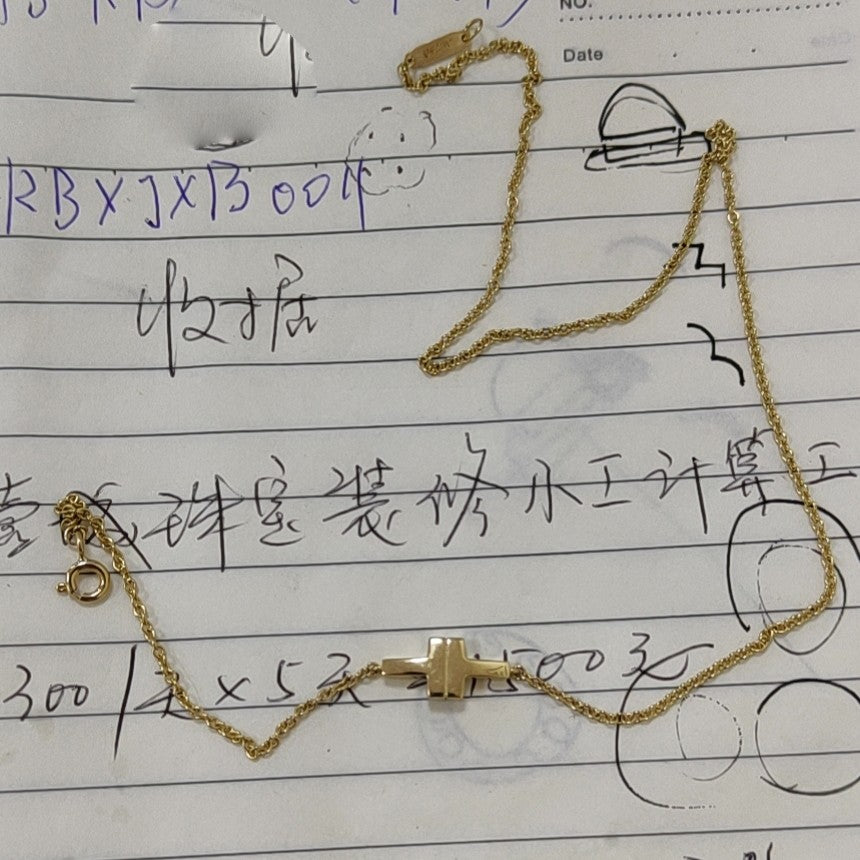 NO.
Date
RBXJXB001
收据
珠宝装修小工计算工
300/天×5天=1500元